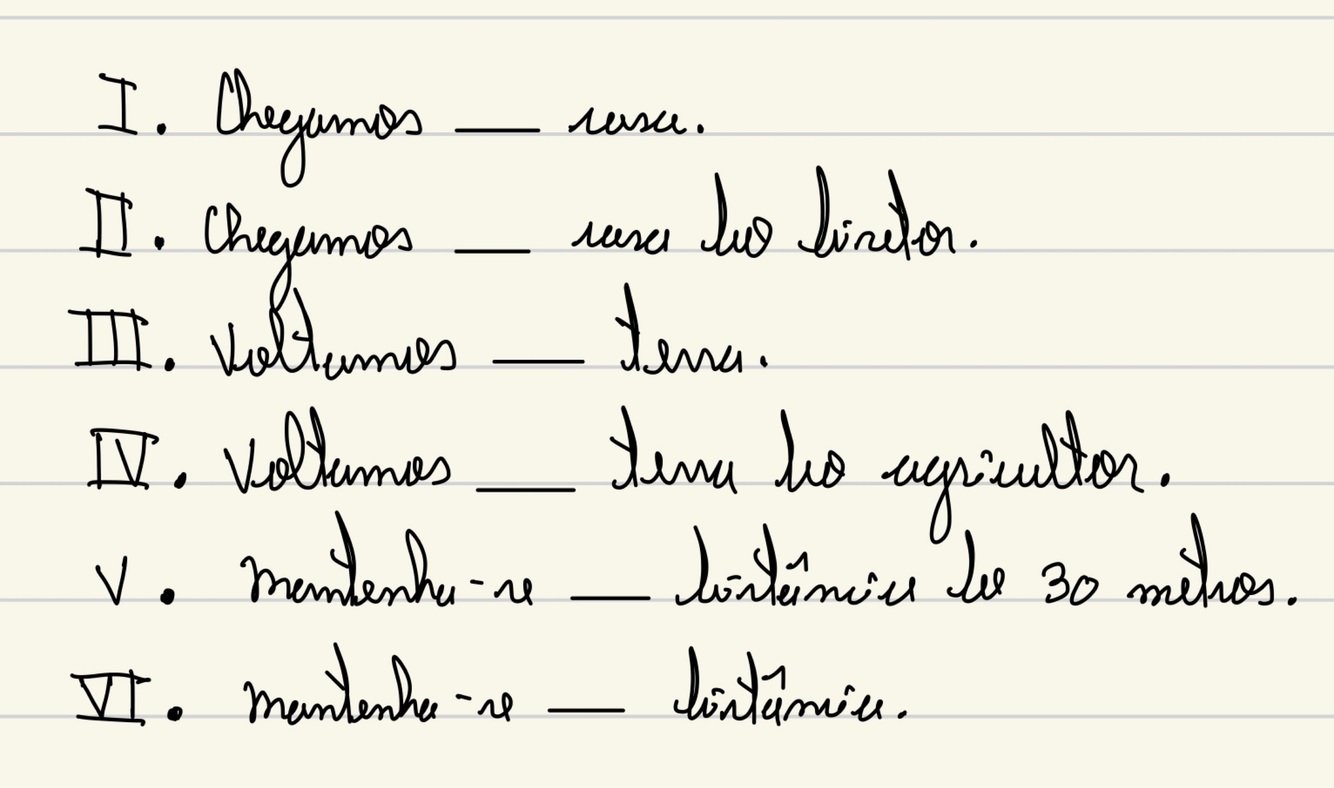 I. Chegamos ___ casa.
II. Chegamos ___ casa do diretor.
III. Voltamos ___ terra.
IV. Voltamos ___ terra do agricultor.
V. mantenha-se ___ distância de 30 metros.
VI. mantenha-se ___ distância.